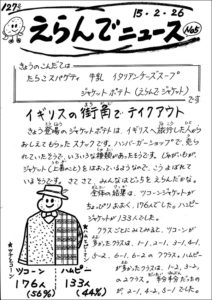 127号
15・2・26
えらんでニュース
No5
きょうのこんだては
たらこスパゲティ 牛乳 イタリアンチーズスープ
ジャケットポテト(えらんでジャケット)
です
イギリスの街角でテイクアウト
きょう登場のジャケットポテトは、イギリスへ旅行した人から
おしえてもらったスナックです。ハンバーガーショップで、売ら
れていたそうで、いろいろな種類があったもようす。じゃがいもが、
ジャケット(上着のこと)をはおっているようなので、こうよばれて
いるそうです。さてさて、みんなはどっちをえらんだかな。
全体の結果は、ツコーンジャケットが
ちょっぴりおおく、176人でした。ハンピー
ジャケットが133人でした。
クラスごとにみてみると、ツコーンが
多かったクラスは、1-1、2-1、3-1、4-1、
5-2、6-1、6-2のクラス。ハンピー
が多かったクラスは、1-2、3-2、
のクラス。半分半分だったの
が、2-2、4-2、5-1でした。
ツコーン
176人
(56%)
ハンピー
133人
(44%)